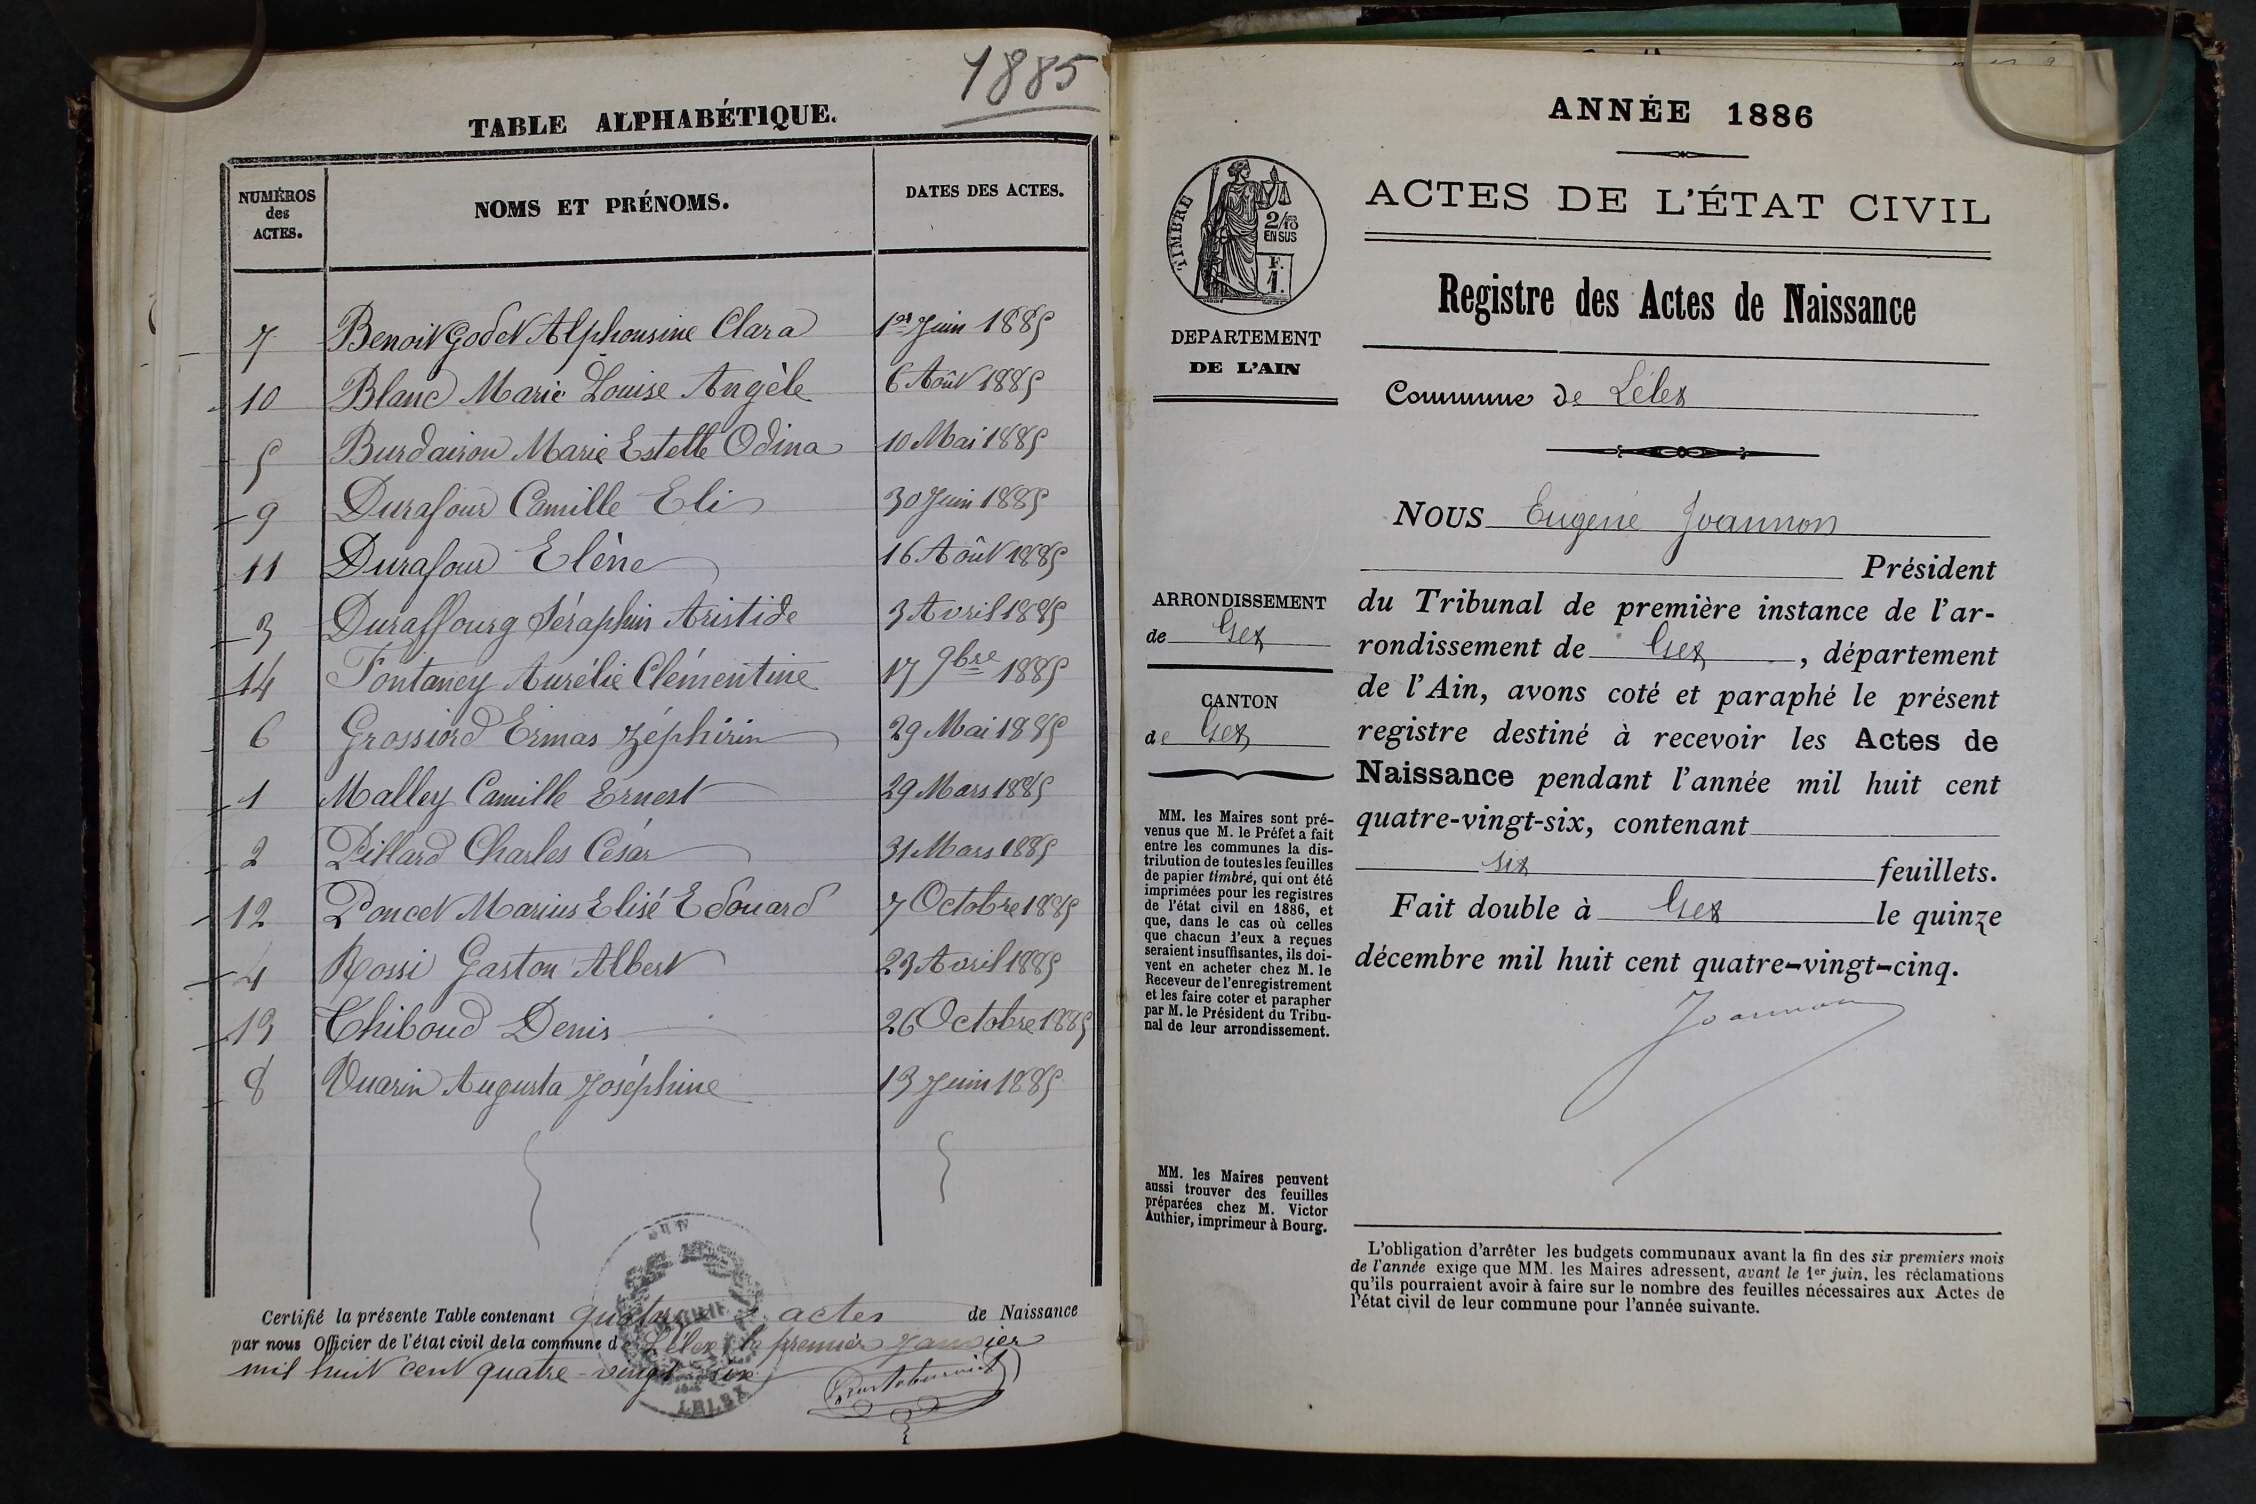 1885
TABLE ALPHABÉTIQUE.
NUMÉROS des ACTES. NOMS ET PRÉNOMS. DATES DES ACTES.
7 Benoit Godet Alphonsine Clara 1er Juin 1885
10 Blanc Marie Louise Angèle 6 Août 1885
5 Burdairon Marie Estelle Odina 10 Mai 1885
9 Durafour Camille Eli 30 Juin 1885
11 Durafour Elène 16 Août 1885
3 Duraffourg Séraphin Aristide 3 Avril 1885
14 Fontaney Aurélie Clémentine 17 9bre 1885
6 Grossiord Ermas Zéphirin 29 Mai 1885
1 Malley Camille Ernest 29 Mars 1885
2 Pillard Charles César 31 Mars 1885
12 Poncet Marius Elisé Edouard 7 Octobre 1885
4 Rossi Gaston Albert 23 Avril 1885
13 Thiboud Denis 26 Octobre 1885
8 Vuarin Augusta Joséphine 13 Juin 1885
Certifié la présente Table contenant quatorze actes de Naissance
par nous Officier de l'état civil de la commune de Lélex le premier Janvier
mil huit cent quatre-vingt six
LELEX
ANNÉE 1886
ACTES DE L'ÉTAT CIVIL
Registre des Actes de Naissance
TIMBRE
2/10
EN SUS
F.
1.
DEPARTEMENT
DE L'AIN
Commune de Lélex
ARRONDISSEMENT
de Gex
CANTON
de Gex
MM. les Maires sont pré-
venus que M. le Préfet a fait
entre les communes la dis-
tribution de toutes les feuilles
de papier timbré, qui ont été
imprimées pour les registres
de l'état civil en 1886, et
que, dans le cas où celles
que chacun d'eux a reçues
seraient insuffisantes, ils doi-
vent en acheter chez M. le
Receveur de l'enregistrement
et les faire coter et parapher
par M. le Président du Tribu-
nal de leur arrondissement.
MM. les Maires peuvent
aussi trouver des feuilles
préparées chez M. Victor
Authier, imprimeur à Bourg.
NOUS Eugène Joannon
Président
du Tribunal de première instance de l'ar-
rondissement de Gex, département
de l'Ain, avons coté et paraphé le présent
registre destiné à recevoir les Actes de
Naissance pendant l'année mil huit cent
quatre-vingt-six, contenant
six feuillets.
Fait double à Gex le quinze
décembre mil huit cent quatre-vingt-cinq.
Joannon
L'obligation d'arrêter les budgets communaux avant la fin des six premiers mois
de l'année exige que MM. les Maires adressent, avant le 1er juin, les réclamations
qu'ils pourraient avoir à faire sur le nombre des feuilles nécessaires aux Actes de
l'état civil de leur commune pour l'année suivante.